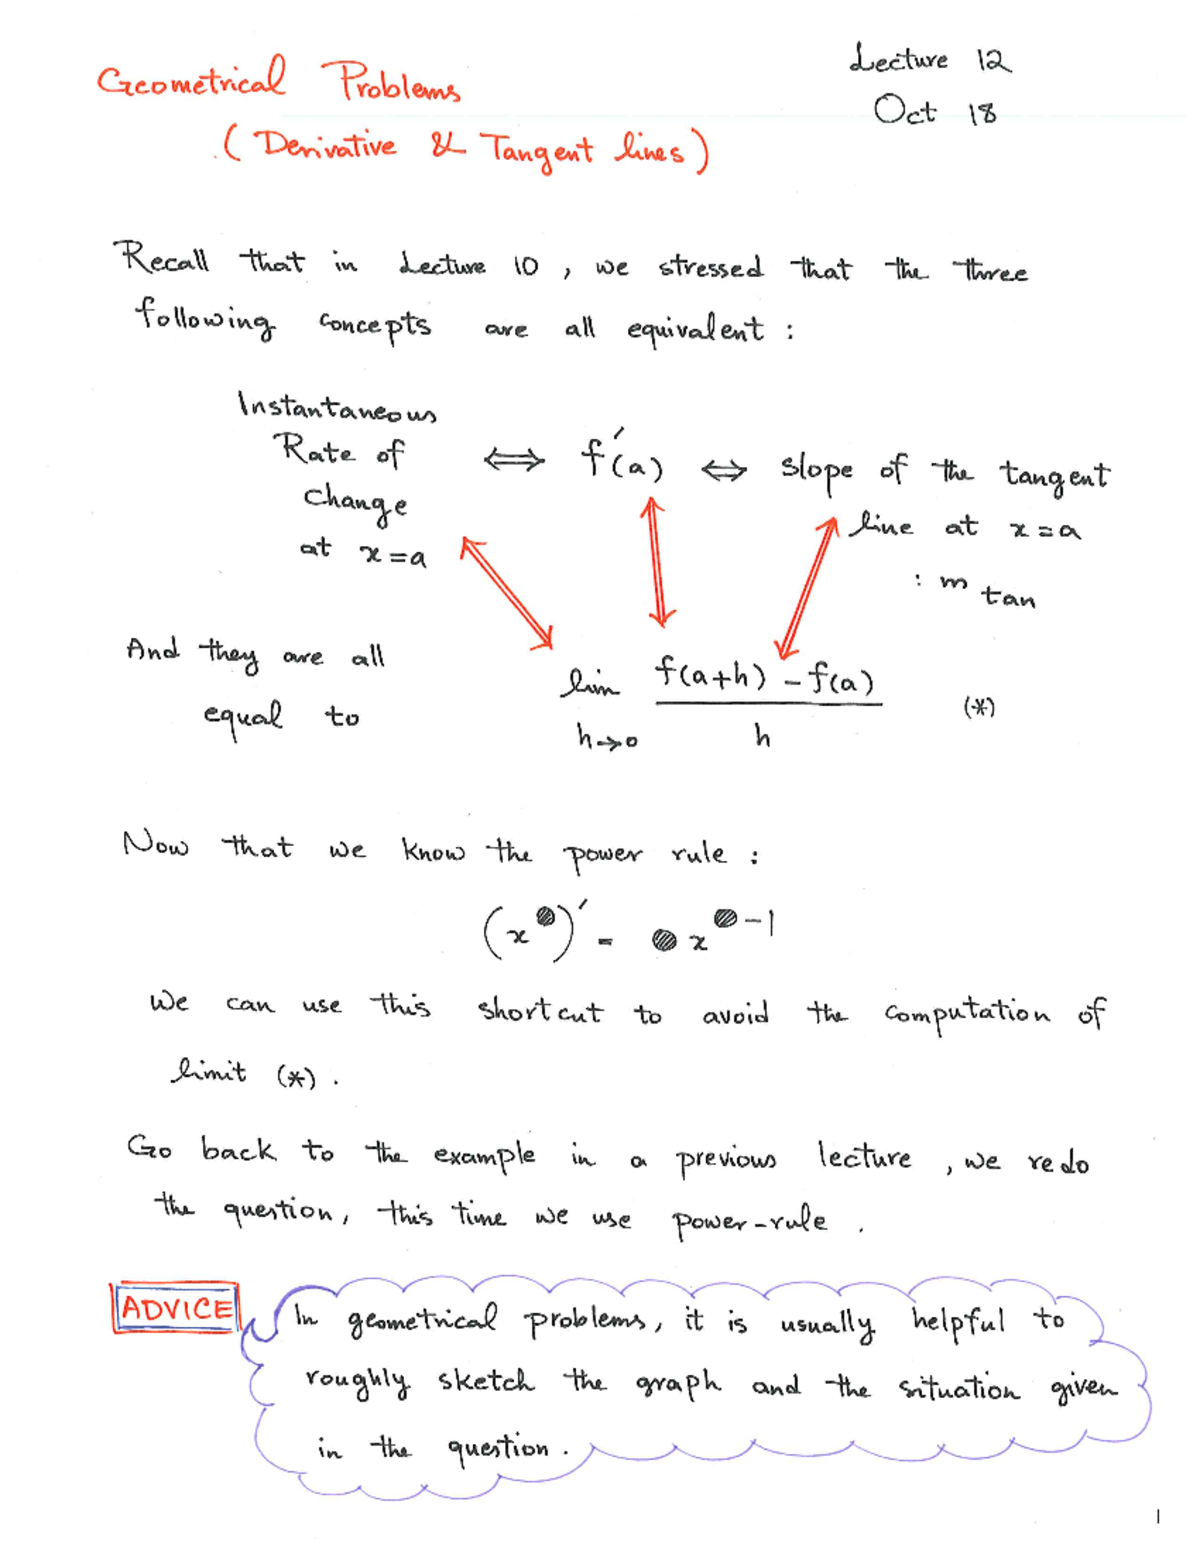 Geometrical Problems
(Derivative & Tangent lines)
Lecture 12
Oct 18
Recall that in Lecture 10, we stressed that the three
following concepts are all equivalent :
Instantaneous
Rate of
change
at x = a
⟺ f'(a) ⟺ slope of the tangent
line at x = a
: m tan
And they are all
equal to
lim h→0 (f(a+h) - f(a)) / h (*)
Now that we know the power rule :
(x^●)' = ● x^(●-1)
We can use this shortcut to avoid the computation of
limit (*).
Go back to the example in a previous lecture, we redo
the question, this time we use power-rule.
ADVICE
In geometrical problems, it is usually helpful to
roughly sketch the graph and the situation given
in the question.
1